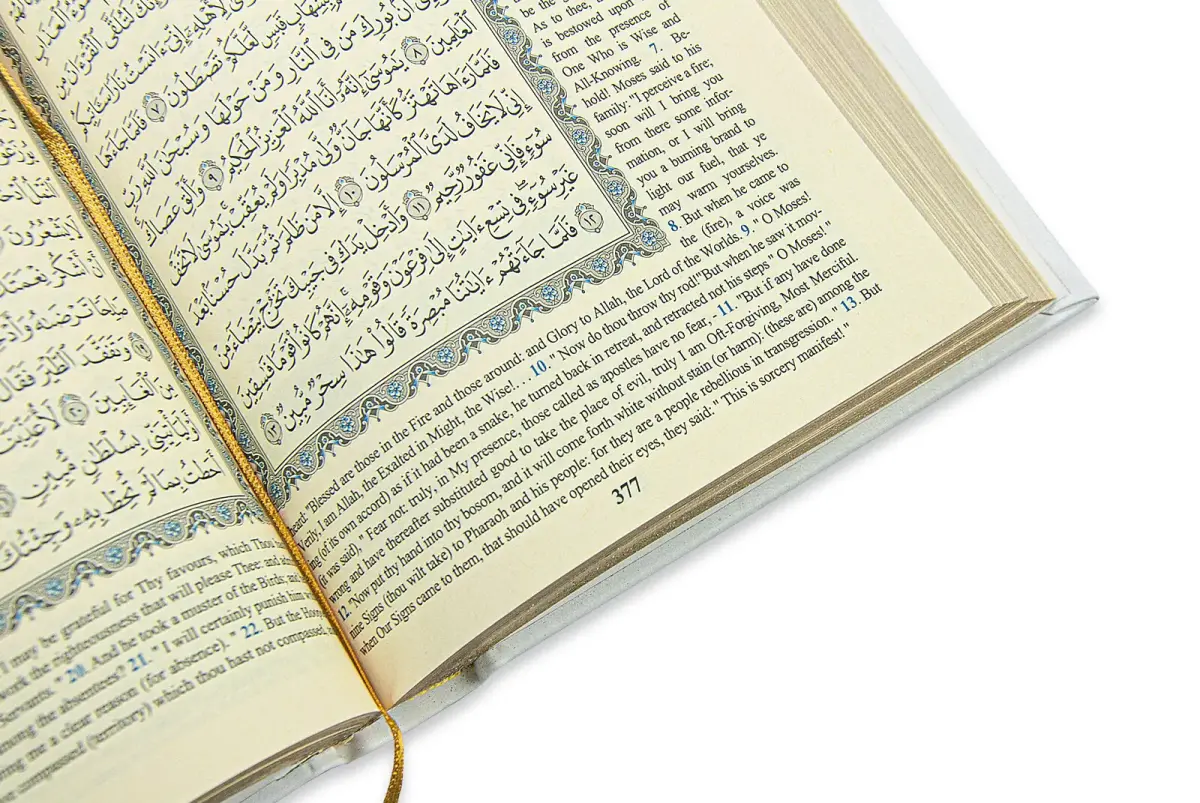 ٱلْعَذَابِ
لَتُلَقَّى ٱلْقُرْءَانَ مِن
لِأَهْلِهِۦٓ إِنِّىٓ ءَانَسْتُ نَارًا سَـَٔاتِيكُم
بِشِهَابٍ قَبَسٍ لَّعَلَّكُمْ تَصْطَلُونَ ٧ فَلَمَّا جَآءَهَا
أَنۢ بُورِكَ مَن فِى ٱلنَّارِ وَمَنْ حَوْلَهَا وَسُبْحَٰنَ ٱللَّهِ رَبِّ
ٱلْعَٰلَمِينَ ٨ يَٰمُوسَىٰٓ إِنَّهُۥٓ أَنَا ٱللَّهُ ٱلْعَزِيزُ ٱلْحَكِيمُ ٩ وَأَلْقِ عَصَاكَ
فَلَمَّا رَءَاهَا تَهْتَزُّ كَأَنَّهَا جَآنٌّ وَلَّىٰ مُدْبِرًا وَلَمْ يُعَقِّبْ يَٰمُوسَىٰ لَا تَخَفْ
إِنِّى لَا يَخَافُ لَدَىَّ ٱلْمُرْسَلُونَ ١٠ إِلَّا مَن ظَلَمَ ثُمَّ بَدَّلَ حُسْنًۢا بَعْدَ
سُوٓءٍ فَإِنِّى غَفُورٌ رَّحِيمٌ ١١ وَأَدْخِلْ يَدَكَ فِى جَيْبِكَ تَخْرُجْ بَيْضَآءَ مِنْ
غَيْرِ سُوٓءٍ فِى تِسْعِ ءَايَٰتٍ إِلَىٰ فِرْعَوْنَ وَقَوْمِهِۦٓ إِنَّهُمْ كَانُوا۟ قَوْمًا فَٰسِقِينَ
١٢ فَلَمَّا جَآءَتْهُمْ ءَايَٰتُنَا مُبْصِرَةً قَالُوا۟ هَٰذَا سِحْرٌ مُّبِينٌ ١٣
be the
As to thee,
is bestowed upon
from the presence of
One Who is Wise and
All-Knowing. 7. Be-
hold! Moses said to his
family: "I perceive a fire;
soon will I bring you
from there some infor-
mation, or I will bring
you a burning brand to
light our fuel, that ye
may warm yourselves.
8. But when he came to
the (fire), a voice was
heard: "Blessed are those in the Fire and those around: and Glory to Allah, the Lord of the Worlds. 9. " O Moses!
Verily, I am Allah, the Exalted in Might, the Wise!. . . 10. " Now do thou throw thy rod!"But when he saw it mov-
ing (of its own accord) as if it had been a snake, he turned back in retreat, and retracted not his steps" O Moses!"
(it was said)," Fear not: truly, in My presence, those called as apostles have no fear, - 11. "But if any have done
wrong and have thereafter substituted good to take the place of evil, truly I am Oft-Forgiving, Most Merciful.
12. "Now put thy hand into thy bosom, and it will come forth white without stain (or harm): (these are) among the
nine Signs (thou wilt take) to Pharaoh and his people: for they are a people rebellious in transgression. " 13. But
when Our Signs came to them, that should have opened their eyes, they said: " This is sorcery manifest!"
377
لَا يَشْعُرُونَ
أَنْ أَشْكُرَ نِعْمَتَكَ
صَٰلِحًا تَرْضَىٰهُ وَأَدْخِلْنِى
١٩ وَتَفَقَّدَ ٱلطَّيْرَ فَقَالَ
مِنَ ٱلْغَآئِبِينَ ٢٠ لَأُعَذِّبَنَّهُۥ
أَوْ لَيَأْتِيَنِّى بِسُلْطَٰنٍ مُّبِينٍ
أَحَطتُ بِمَا لَمْ تُحِطْ بِهِۦ وَجِئْتُكَ
I may be grateful for Thy favours, which Thou
work the righteousness that will please Thee: and
Servants. " 20. And he took a muster of the Birds; and
among the absentees? 21. " I will certainly punish him
me a clear reason (for absence). " 22. But the
compassed (territory) which thou hast not compassed,